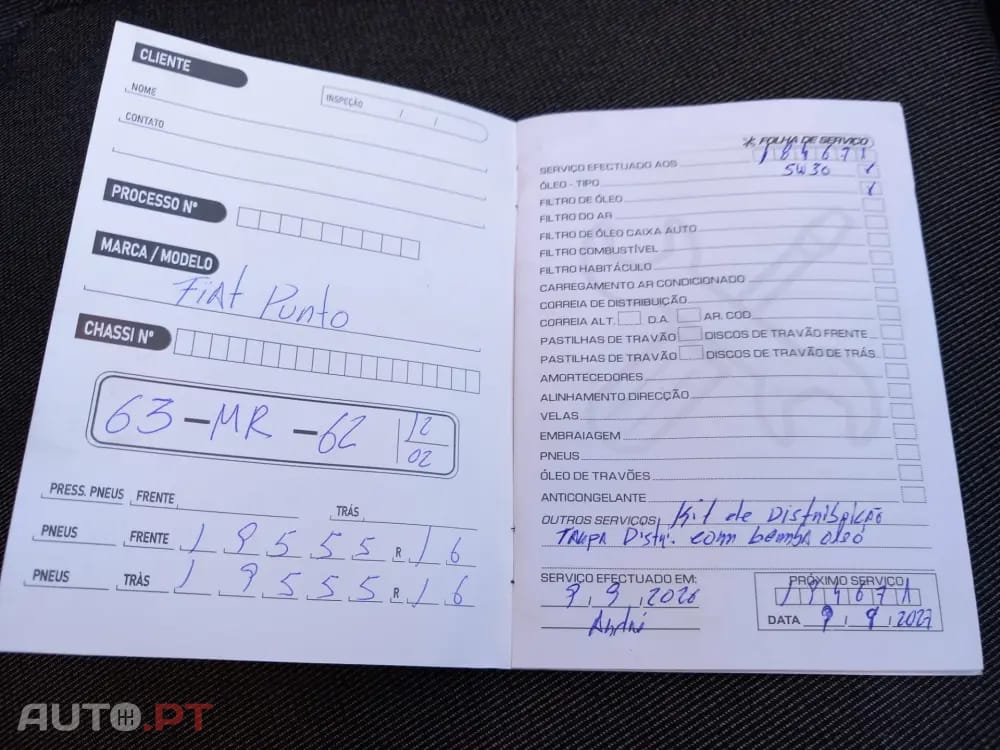 CLIENTE
INSPEÇÃO / /
NOME
CONTATO
PROCESSO Nº
MARCA / MODELO
Fiat Punto
CHASSI Nº
63-MR-62 12
02
PRESS. PNEUS FRENTE TRÁS
PNEUS FRENTE 19555R16
PNEUS TRÁS 19555R16
FOLHA DE SERVIÇO
SERVIÇO EFECTUADO AOS 184671
ÓLEO - TIPO 5W30 ✓
FILTRO DE ÓLEO ✓
FILTRO DO AR
FILTRO DE ÓLEO CAIXA AUTO
FILTRO COMBUSTÍVEL
FILTRO HABITÁCULO
CARREGAMENTO AR CONDICIONADO
CORREIA DE DISTRIBUIÇÃO
CORREIA ALT. D.A. AR. COD
PASTILHAS DE TRAVÃO DISCOS DE TRAVÃO FRENTE
PASTILHAS DE TRAVÃO DISCOS DE TRAVÃO DE TRÁS
AMORTECEDORES
ALINHAMENTO DIRECÇÃO
VELAS
EMBRAIAGEM
PNEUS
ÓLEO DE TRAVÕES
ANTICONGELANTE
OUTROS SERVIÇOS Kit de Distribuição
Tampa Distri. com bomba oleo
SERVIÇO EFECTUADO EM:
9, 9, 2026
André
PRÓXIMO SERVIÇO
194671
DATA 9, 9, 2027
AUTO.PT